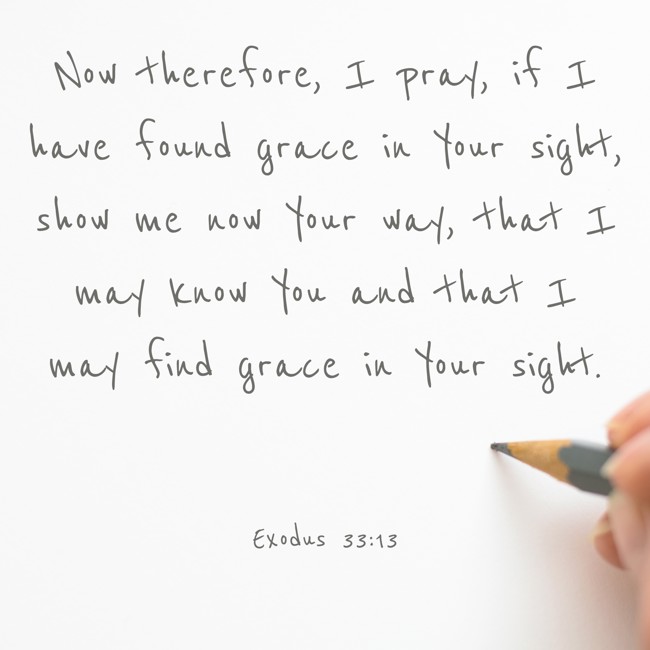 Now therefore, I pray, if I
have found grace in Your sight,
show me now Your way, that I
may know You and that I
may find grace in Your sight.
Exodus 33:13